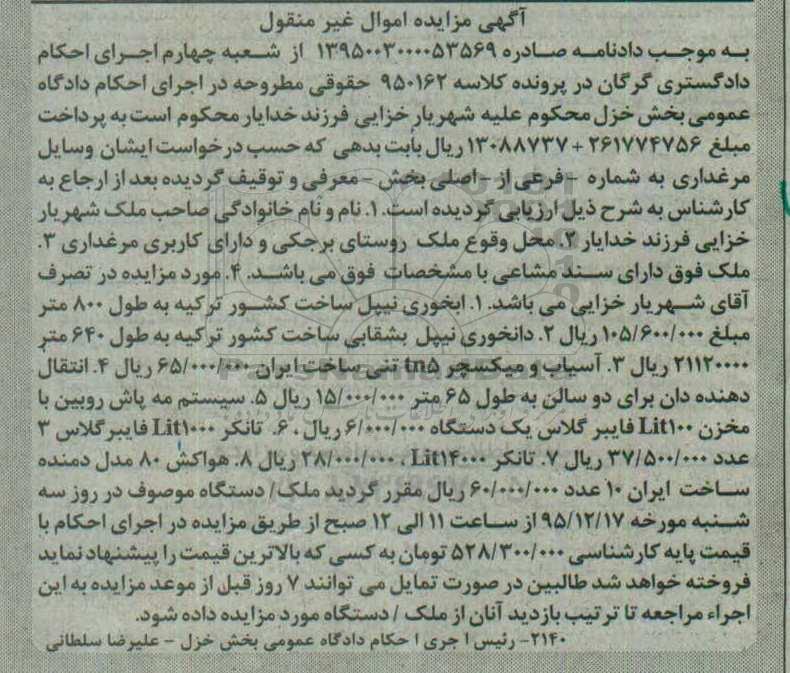 آگهی مزایده اموال غیر منقول
به موجب دادنامه صادره ۱۳۹۵۰۰۳۰۰۰۰۵۳۵۶۹ از شعبه چهارم اجرای احکام
دادگستری گرگان در پرونده کلاسه ۹۵۰۱۶۲ حقوقی مطروحه در اجرای احکام دادگاه
عمومی بخش خزل محکوم علیه شهریار خزایی فرزند خدایار محکوم است به پرداخت
مبلغ ۲۶۱۷۷۴۷۵۶ + ۱۳۰۸۸۷۳۷ ریال بابت بدهی که حسب درخواست ایشان وسایل
مرغداری به شماره – فرعی از – اصلی بخش – معرفی و توقیف گردیده بعد از ارجاع به
کارشناس به شرح ذیل ارزیابی گردیده است. ۱. نام و نام خانوادگی صاحب ملک شهریار
خزایی فرزند خدایار ۲. محل وقوع ملک روستای برجکی و دارای کاربری مرغداری ۳.
ملک فوق دارای سند مشاعی با مشخصات فوق می باشد. ۴. مورد مزایده در تصرف
آقای شهریار خزایی می باشد. ۱. ابخوری نیپل ساخت کشور ترکیه به طول ۸۰۰ متر
مبلغ ۱۰۵/۶۰۰/۰۰۰ ریال ۲. دانخوری نیپل بشقابی ساخت کشور ترکیه به طول ۶۴۰ متر
۲۱۱۲۰۰۰۰ ریال ۳. آسیاب و میکسچر tn۵ تنی ساخت ایران ۶۵/۰۰۰/۰۰۰ ریال ۴. انتقال
دهنده دان برای دو سالن به طول ۶۵ متر ۱۵/۰۰۰/۰۰۰ ریال ۵. سیستم مه پاش روبین با
مخزن Lit۱۰۰ فایبر گلاس یک دستگاه ۶/۰۰۰/۰۰۰ ریال ۰ ۶. تانکر Lit۱۰۰۰ فایبر گلاس ۳
عدد ۳۷/۵۰۰/۰۰۰ ریال ۷. تانکر Lit۱۴۰۰۰ ، ۲۸/۰۰۰/۰۰۰ ریال ۸. هواکش ۸۰ مدل دمنده
ساخت ایران ۱۰ عدد ۶۰/۰۰۰/۰۰۰ ریال مقرر گردید ملک/ دستگاه موصوف در روز سه
شنبه مورخه ۹۵/۱۲/۱۷ از ساعت ۱۱ الی ۱۲ صبح از طریق مزایده در اجرای احکام با
قیمت پایه کارشناسی ۵۲۸/۳۰۰/۰۰۰ تومان به کسی که بالاترین قیمت را پیشنهاد نماید
فروخته خواهد شد طالبین در صورت تمایل می توانند ۷ روز قبل از موعد مزایده به این
اجراء مراجعه تا ترتیب بازدید آنان از ملک / دستگاه مورد مزایده داده شود.
۲۱۴۰- رئیس ا جری ا حکام دادگاه عمومی بخش خزل – علیرضا سلطانی